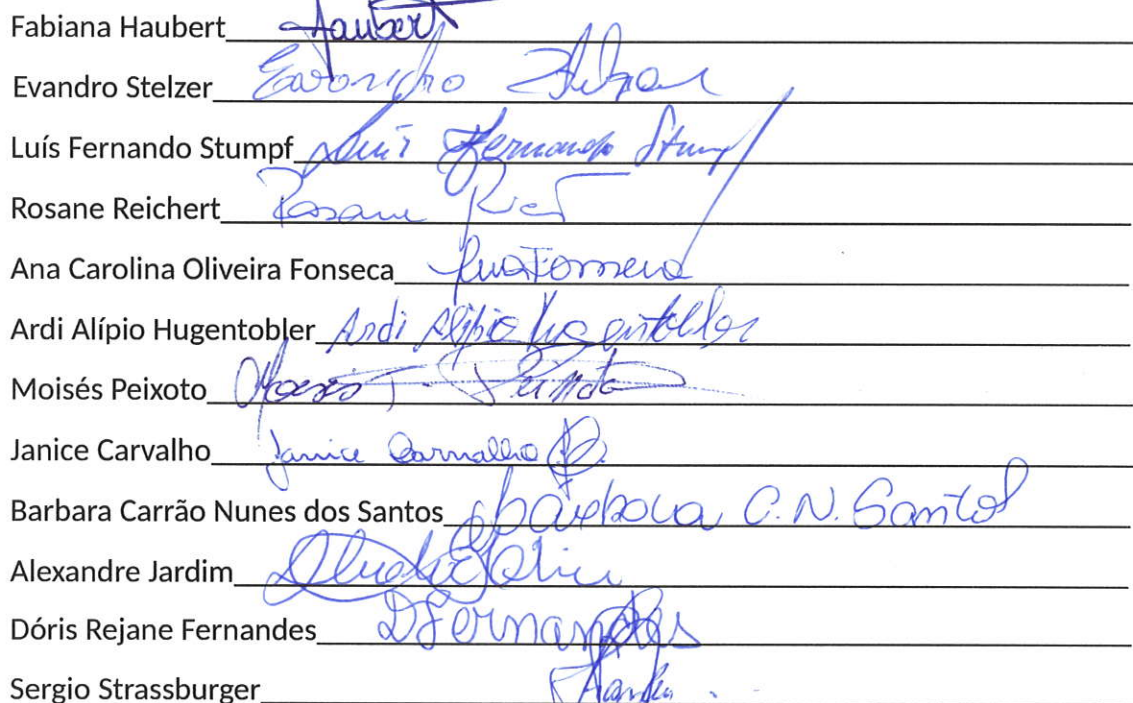 Fabiana Haubert Haubert
Evandro Stelzer Evandro Stelzer
Luís Fernando Stumpf Luís Fernando Stumpf
Rosane Reichert Rosane
Ana Carolina Oliveira Fonseca Ana Fonseca
Ardi Alípio Hugentobler Ardi Alípio Hugentobler
Moisés Peixoto
Janice Carvalho Janice Carvalho
Barbara Carrão Nunes dos Santos Barbara C. N. Santos
Alexandre Jardim
Dóris Rejane Fernandes DFernandes
Sergio Strassburger